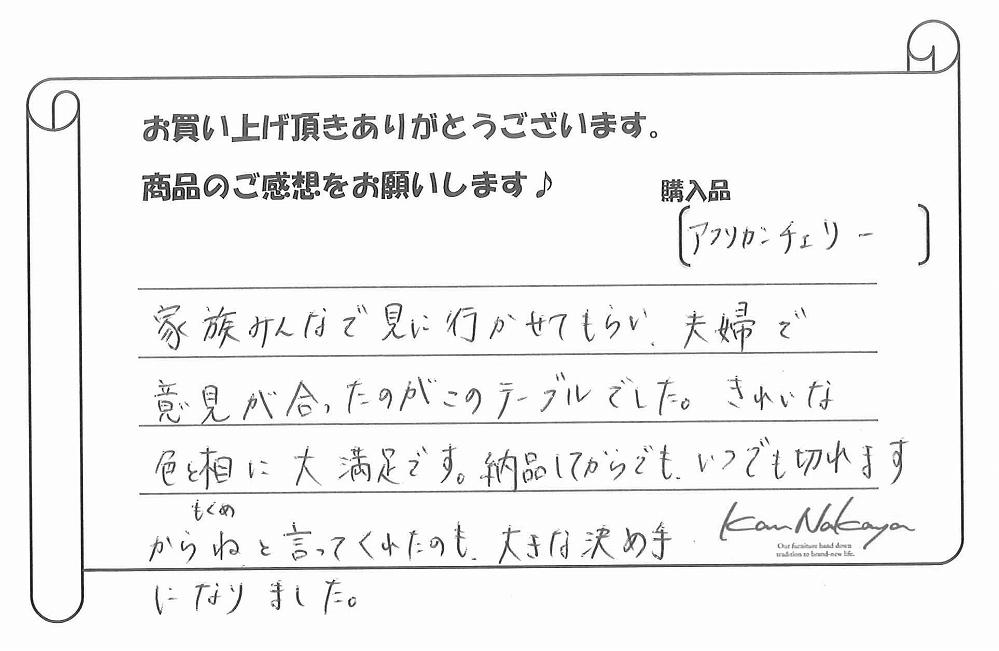 お買い上げ頂きありがとうございます。
商品のご感想をお願いします♪
購入品
〔アフリカンチェリー〕
家族みんなで見に行かせてもらい、夫婦で
意見が合ったのがこのテーブルでした。きれいな
色と相に大満足です。納品してからでも、いつでも切れます
もくめ
からねと言ってくれたのも、大きな決め手
になりました。
Kan Nakaya
Our furniture hand down
tradition to brand-new life.